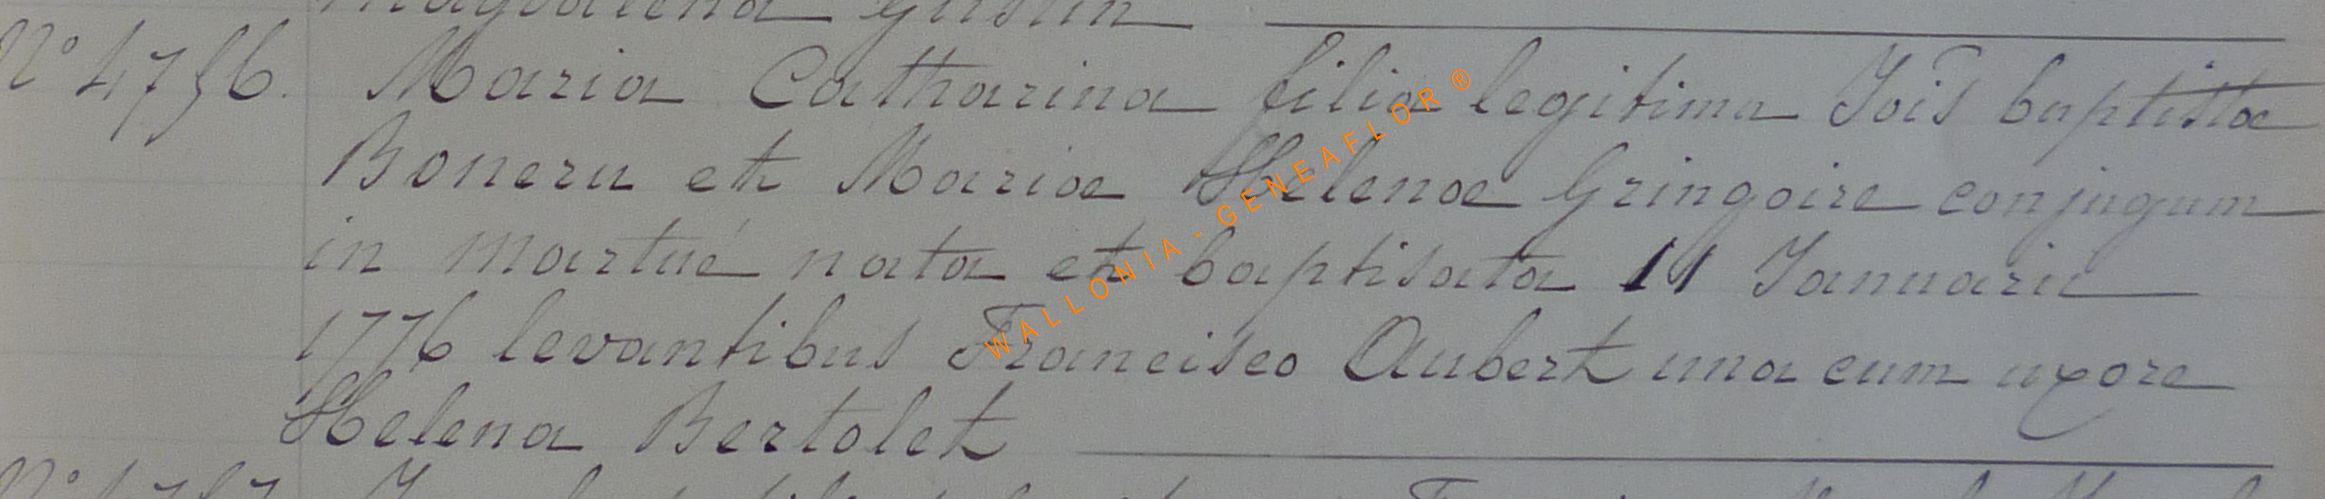 Magdalena Guslin
N° 4756. Maria Catharina filia legitima Jois baptistæ
Boneru et Mariæ Helenæ Gringoire conjugum
in Martué nata et baptisata 11 Januarii
1776 levantibus Francisco Aubert una cum uxore
Helena Bertolet
WALLONIA - GENEAFLOR ®